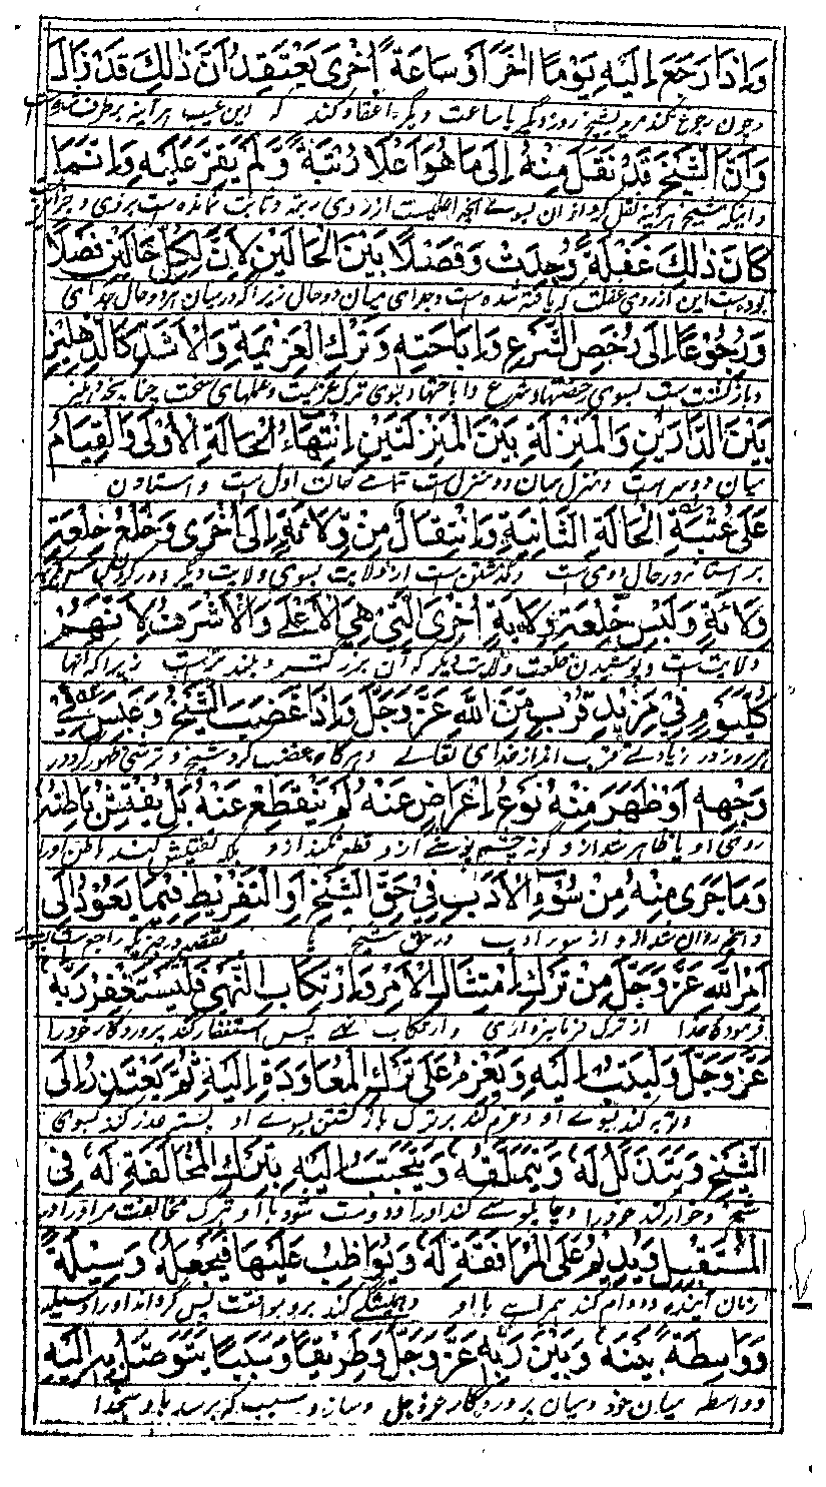 وَإِذَا رَجَعَ إِلَيْهِ يَوْمًا اٰخَرَ أَوْ سَاعَةً أُخْرٰى يَعْتَقِدُ أَنَّ ذٰلِكَ قَدْ زَالَ
وچون رجوع کند مرید بشیخ روز دیگر یا ساعت دیگر اعتقاد کند که این عیب هر آینه برطرف شده
وَأَنَّ الشَّيْخَ قَدْ نُقِلَ مِنْهُ إِلٰى مَا هُوَ أَعْلَا رُتْبَةً وَلَمْ يَقِرَّ عَلَيْهِ وَإِنَّمَا
و اینکه شیخ هر آینه نقل کرد از ان بسوے آنچه از روی رتبه و ثابت نمانده است بروی
كَانَ ذٰلِكَ غَفْلَةً وُجِدَتْ وَفَصْلًا بَيْنَ الْحَالَيْنِ لِأَنَّ لِكُلِّ حَالَيْنِ فَصْلًا
بوده است این از روی غفلت که یافته شده است و جدای میان دو حال زیرا که درمیان هر دو حال جدای
وَرُجُوْعًا إِلٰى رُخَصِ الشَّرْعِ وَإِبَاحَتِهٖ وَتَرْكِ الْعَزِيْمَةِ وَالْأَشَدِّ كَالدِّهْلِيْزِ
و باز گشت است بسوی رخصتهاء شرع و اباحتها و بسوی ترک عزیمت و عملهای سخت چنانچه دهلیز
بَيْنَ الدَّارَيْنِ وَالْمَنْزِلَةِ بَيْنَ الْمَنْزِلَتَيْنِ اِنْتِهَاءُ الْحَالَةِ الْأُوْلٰى وَالْقِيَامُ
میان دو سرا ست و منزل میان دو منزل است تمامے حالت اول ست و استادن
عَلٰى عَتَبَةِ الْحَالَةِ الثَّانِيَةِ وَانْتِقَالٌ مِنْ وِّلَايَةٍ إِلٰى أُخْرٰى وَخَلْعُ خِلْعَةِ
بر آستانه و حال دومی است و گذشتن است از ولایت بسوی ولایت دیگر و دور کردن
وِلَايَةٍ وَلُبْسُ خِلْعَةِ وِلَايَةٍ أُخْرَى الَّتِيْ هِيَ الْأَعْلٰى وَالْأَشْرَفُ لِأَنَّهُمْ
ولایت ست و پوشیدن خلعت ولایت دیگر که آن بزرگتر و بلندترست زیرا که آنها
كُلَّ يَوْمٍ فِيْ مَزِيْدِ قُرْبٍ مِّنَ اللّٰهِ عَزَّ وَجَلَّ وَإِذَا غَضِبَ الشَّيْخُ وَعَبَسَ فِيْ
هر روز در زیادتے قرب اند از خدای تعالے و هرگاه غضب کرد شیخ و ترشی ظهور کرد در
وَجْهِهٖ أَوْ ظَهَرَ مِنْهُ نَوْعُ إِعْرَاضٍ عَنْهُ لَمْ يَنْقَطِعْ عَنْهُ بَلْ يُفَتِّشُ بَاطِنَهٗ
روی او یا ظاهر شد از و گونه چشم پوشے از و قطع نکند از و بلکه تفتیش کند باطن او را
وَمَا جَرٰى مِنْهُ مِنْ سُوْءِ الْأَدَبِ فِيْ حَقِّ الشَّيْخِ أَوِ التَّفْرِيْطِ فِيْمَا يَعُوْدُ إِلٰى
و آنچه روان شد از و از سوء ادب در حق شیخ یا تقصیر در چیزیکه راجع ست
أَمْرِ اللّٰهِ عَزَّ وَجَلَّ مِنْ تَرْكِ امْتِثَالِ الْأَمْرِ وَارْتِكَابِ النَّهْيِ فَلْيَسْتَغْفِرْ رَبَّهٗ
فرموده خدا از ترک فرمانبرداری و ارتکاب نهے پس استغفار کند پروردگار خود را
عَزَّ وَجَلَّ وَلْيَتُبْ إِلَيْهِ وَيَعْزِمُ عَلٰى تَرْكِ الْمُعَاوَدَةِ إِلَيْهِ ثُمَّ يَعْتَذِرُ إِلَى
و توبه کند بسوے او و عزم کند بر ترک باز گشتن بسوے او پستر عذر کند بسوی
الشَّيْخِ وَيَتَذَلَّلُ لَهٗ وَيَتَمَلَّقُهٗ وَيَتَحَبَّبُ إِلَيْهِ بِتَرْكِ الْمُخَالَفَةِ لَهٗ فِي
شیخ و خوار کند خود را و چاپلوسے کند او را و دوست شود با او بترک مخالفت مر او را در
الْمُسْتَقْبِلِ وَيُدِيْمُ عَلَى الْمُرَافَقَةِ لَهٗ وَيُوَاظِبُ عَلَيْهَا فَيَجْعَلُهٗ وَسِيْلَةً
زمان آینده و دوام کند همراهے با او و همیشگے کند برو بموافقت پس گرداند او را وسیله
وَوَاسِطَةً بَيْنَهٗ وَبَيْنَ رَبِّهٖ عَزَّ وَجَلَّ وَطَرِيْقًا وَسَبَبًا يَتَوَصَّلُ بِهٖ إِلَيْهِ
و واسطه میان خود و میان پروردگار عزوجل و سازد سبب که برسد باو بخدا